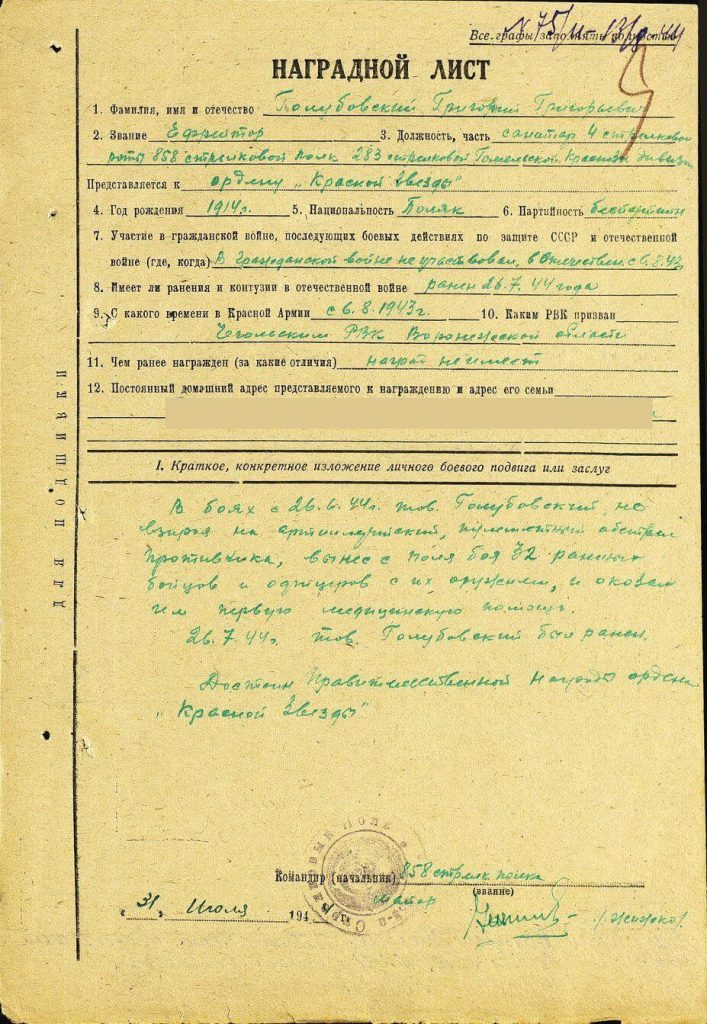 Все графы заполнять полностью
№ 75/н - 13/8 44
НАГРАДНОЙ ЛИСТ
1. Фамилия, имя и отчество Голубовский Григорий Григорьевич
2. Звание Ефрейтор 3. Должность, часть санитар 4 стрелковой
роты 858 стрелковой полк 283 стрелковой Гомельской Красноз. дивизии
Представляется к ордену „Красной Звезды"
4. Год рождения 1914г. 5. Национальность Поляк 6. Партийность беспартион
7. Участие в гражданской войне, последующих боевых действиях по защите СССР и отечественной
войне (где, когда) В Гражданской войне не участвовал, в Отечествен. с 6.8.43
8. Имеет ли ранения и контузии в отечественной войне ранен 26.7.44 года
9. С какого времени в Красной Армии с 6.8.1943г. 10. Каким РВК призван
РВК Воронежской области
11. Чем ранее награжден (за какие отличия) наград не имеет
12. Постоянный домашний адрес представляемого к награждению и адрес его семьи
I. Краткое, конкретное изложение личного боевого подвига или заслуг
В боях с 26.6.44г. тов. Голубовский, не
взирая на артиллерийский, пулеметный обстрел
противника, вынес с поля боя 32 раненых
бойцов и офицеров с их оружием, и оказал
им первую медицинскую помощь.
26.7.44г. тов. Голубовский был ранен.
Достоин Правительственной награды ордена
„Красной Звезды"
Командир (начальник) 858 стрелк полка
(звание)
майор
„31 Июля 194
ДЛЯ ПОДШИВКИ